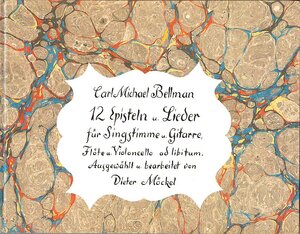 Carl Michael Bellman
12 Episteln u. Lieder
für Singstimme u. Gitarre,
Flöte u. Violoncello ad libitum.
Ausgewählt u. bearbeitet von
Dieter Möckel